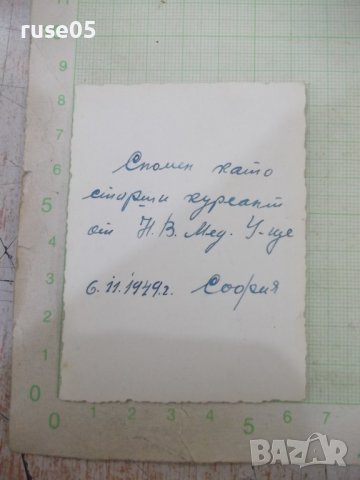 ruse05
Спомен като
старши курсант
от Н.В. Мед. У-ще
6.11.1949г. София
0 1 2 3 4 5 6 7
0
1
2
3
4
5
6
7
8
BAZAR